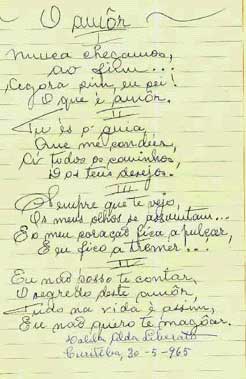 O amôr
I
Nunca chegamos,
ao fim...!
Agora sim, eu sei!
O que é amôr.
II
Tu és o guia,
Que me conduz,
A todos os caminhos,
Dos teus desejos.
III
Sempre que te vejo,
Os meus olhos se assustam...
E o meu coração fica a pulçar,
E eu fico a tremer...!
Eu não posso te contar,
O segredo deste amôr
Tudo na vida é assim,
Eu não quero te magôar.
Dalila Alda Liberato
Curitiba, 30-5-965